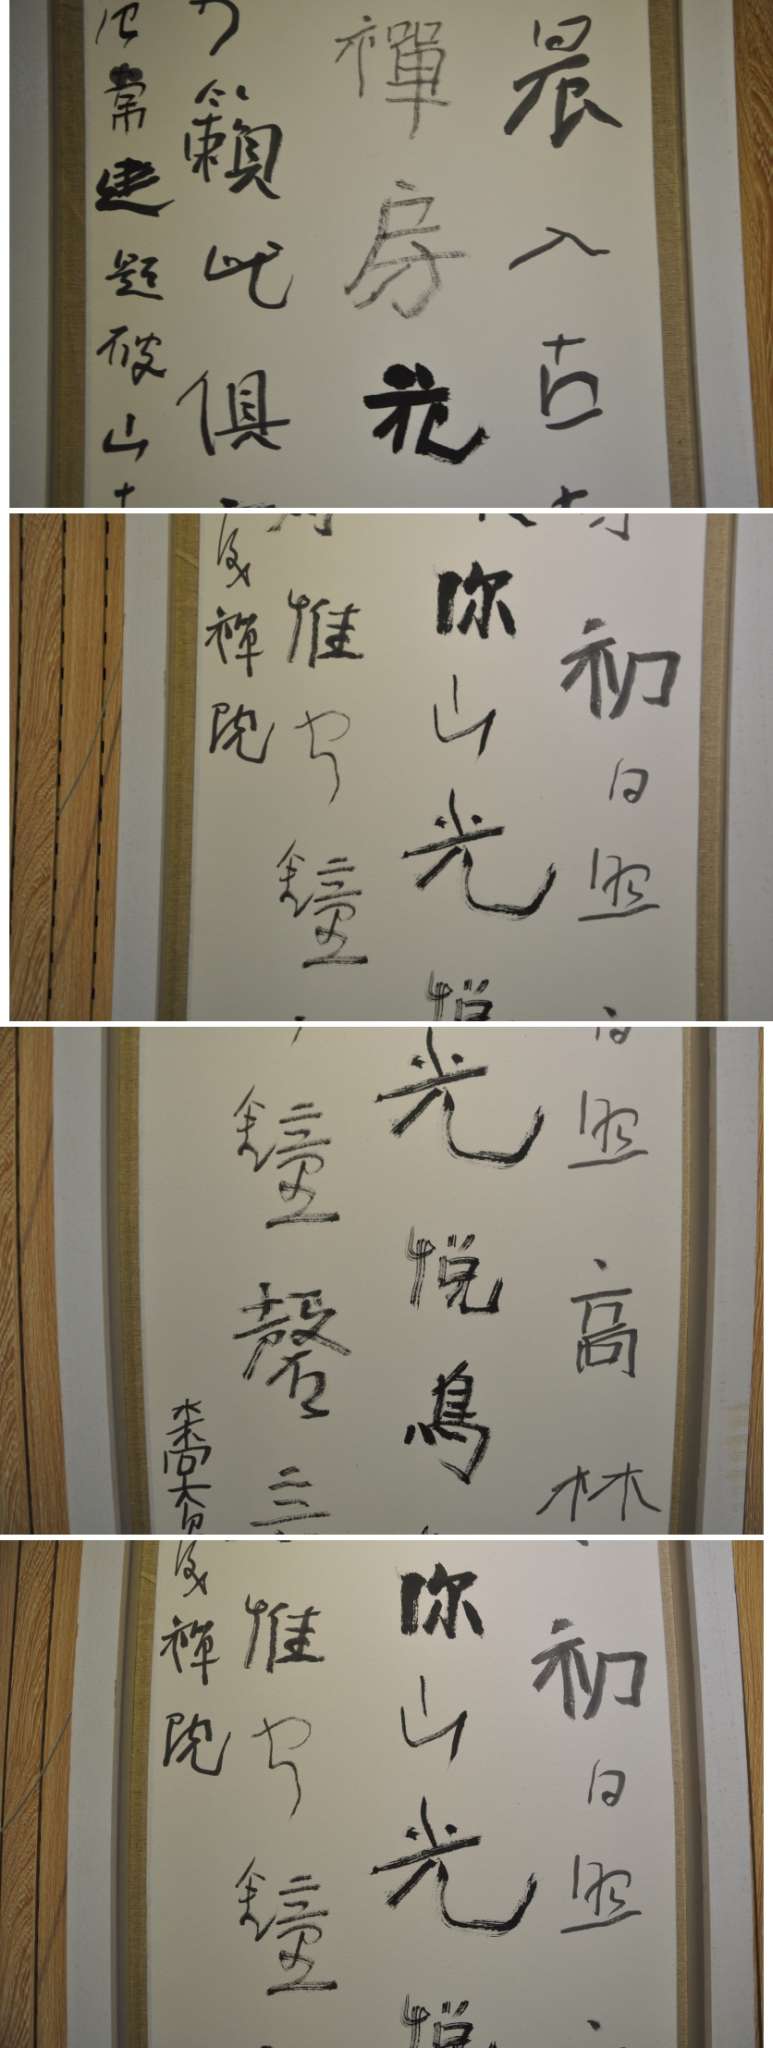 晨入古寺
禪房花
籟此俱
常建題破山寺
初日照
深山光悅
惟聞鐘
後禪院
日照高林
光悅鳥
鐘磬音
初日照
深山光悅
惟聞鐘
後禪院